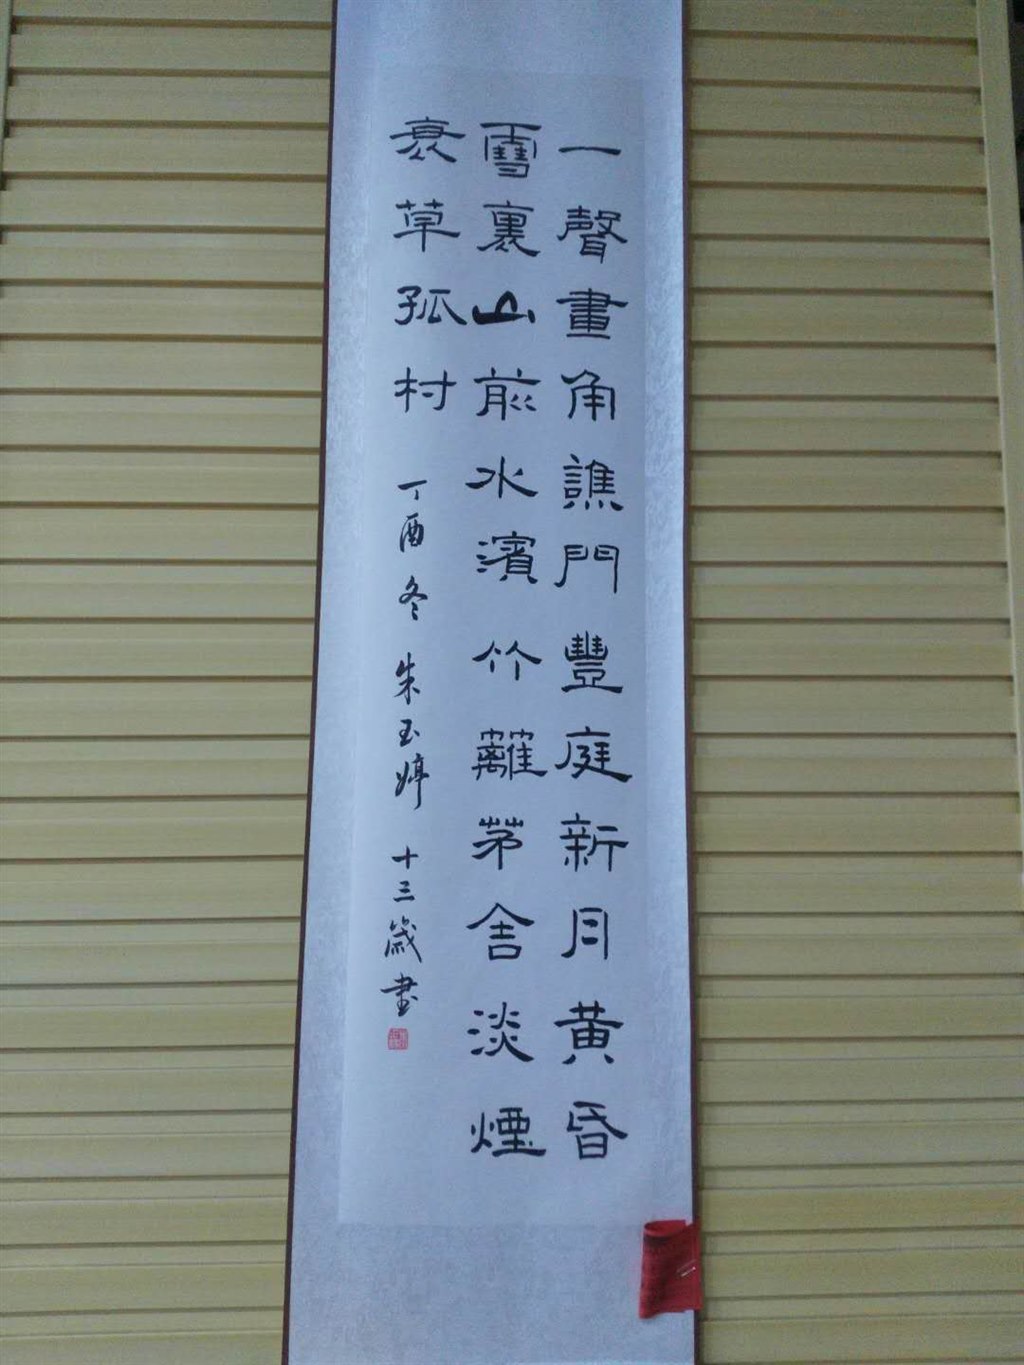 一聲畫角譙門豐庭新月黃昏
雪裏山前水濱竹籬茅舍淡煙
衰草孤村 丁酉冬 朱玉婷 十三歲書